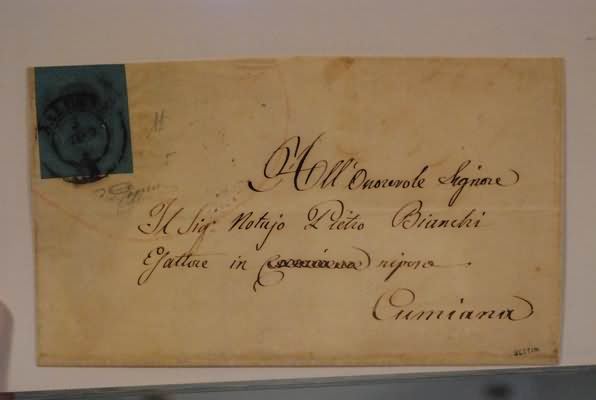 All'Onorevole Signore
Il Sig. Notajo Pietro Bianchi
Esattore in riposo
Cumiana